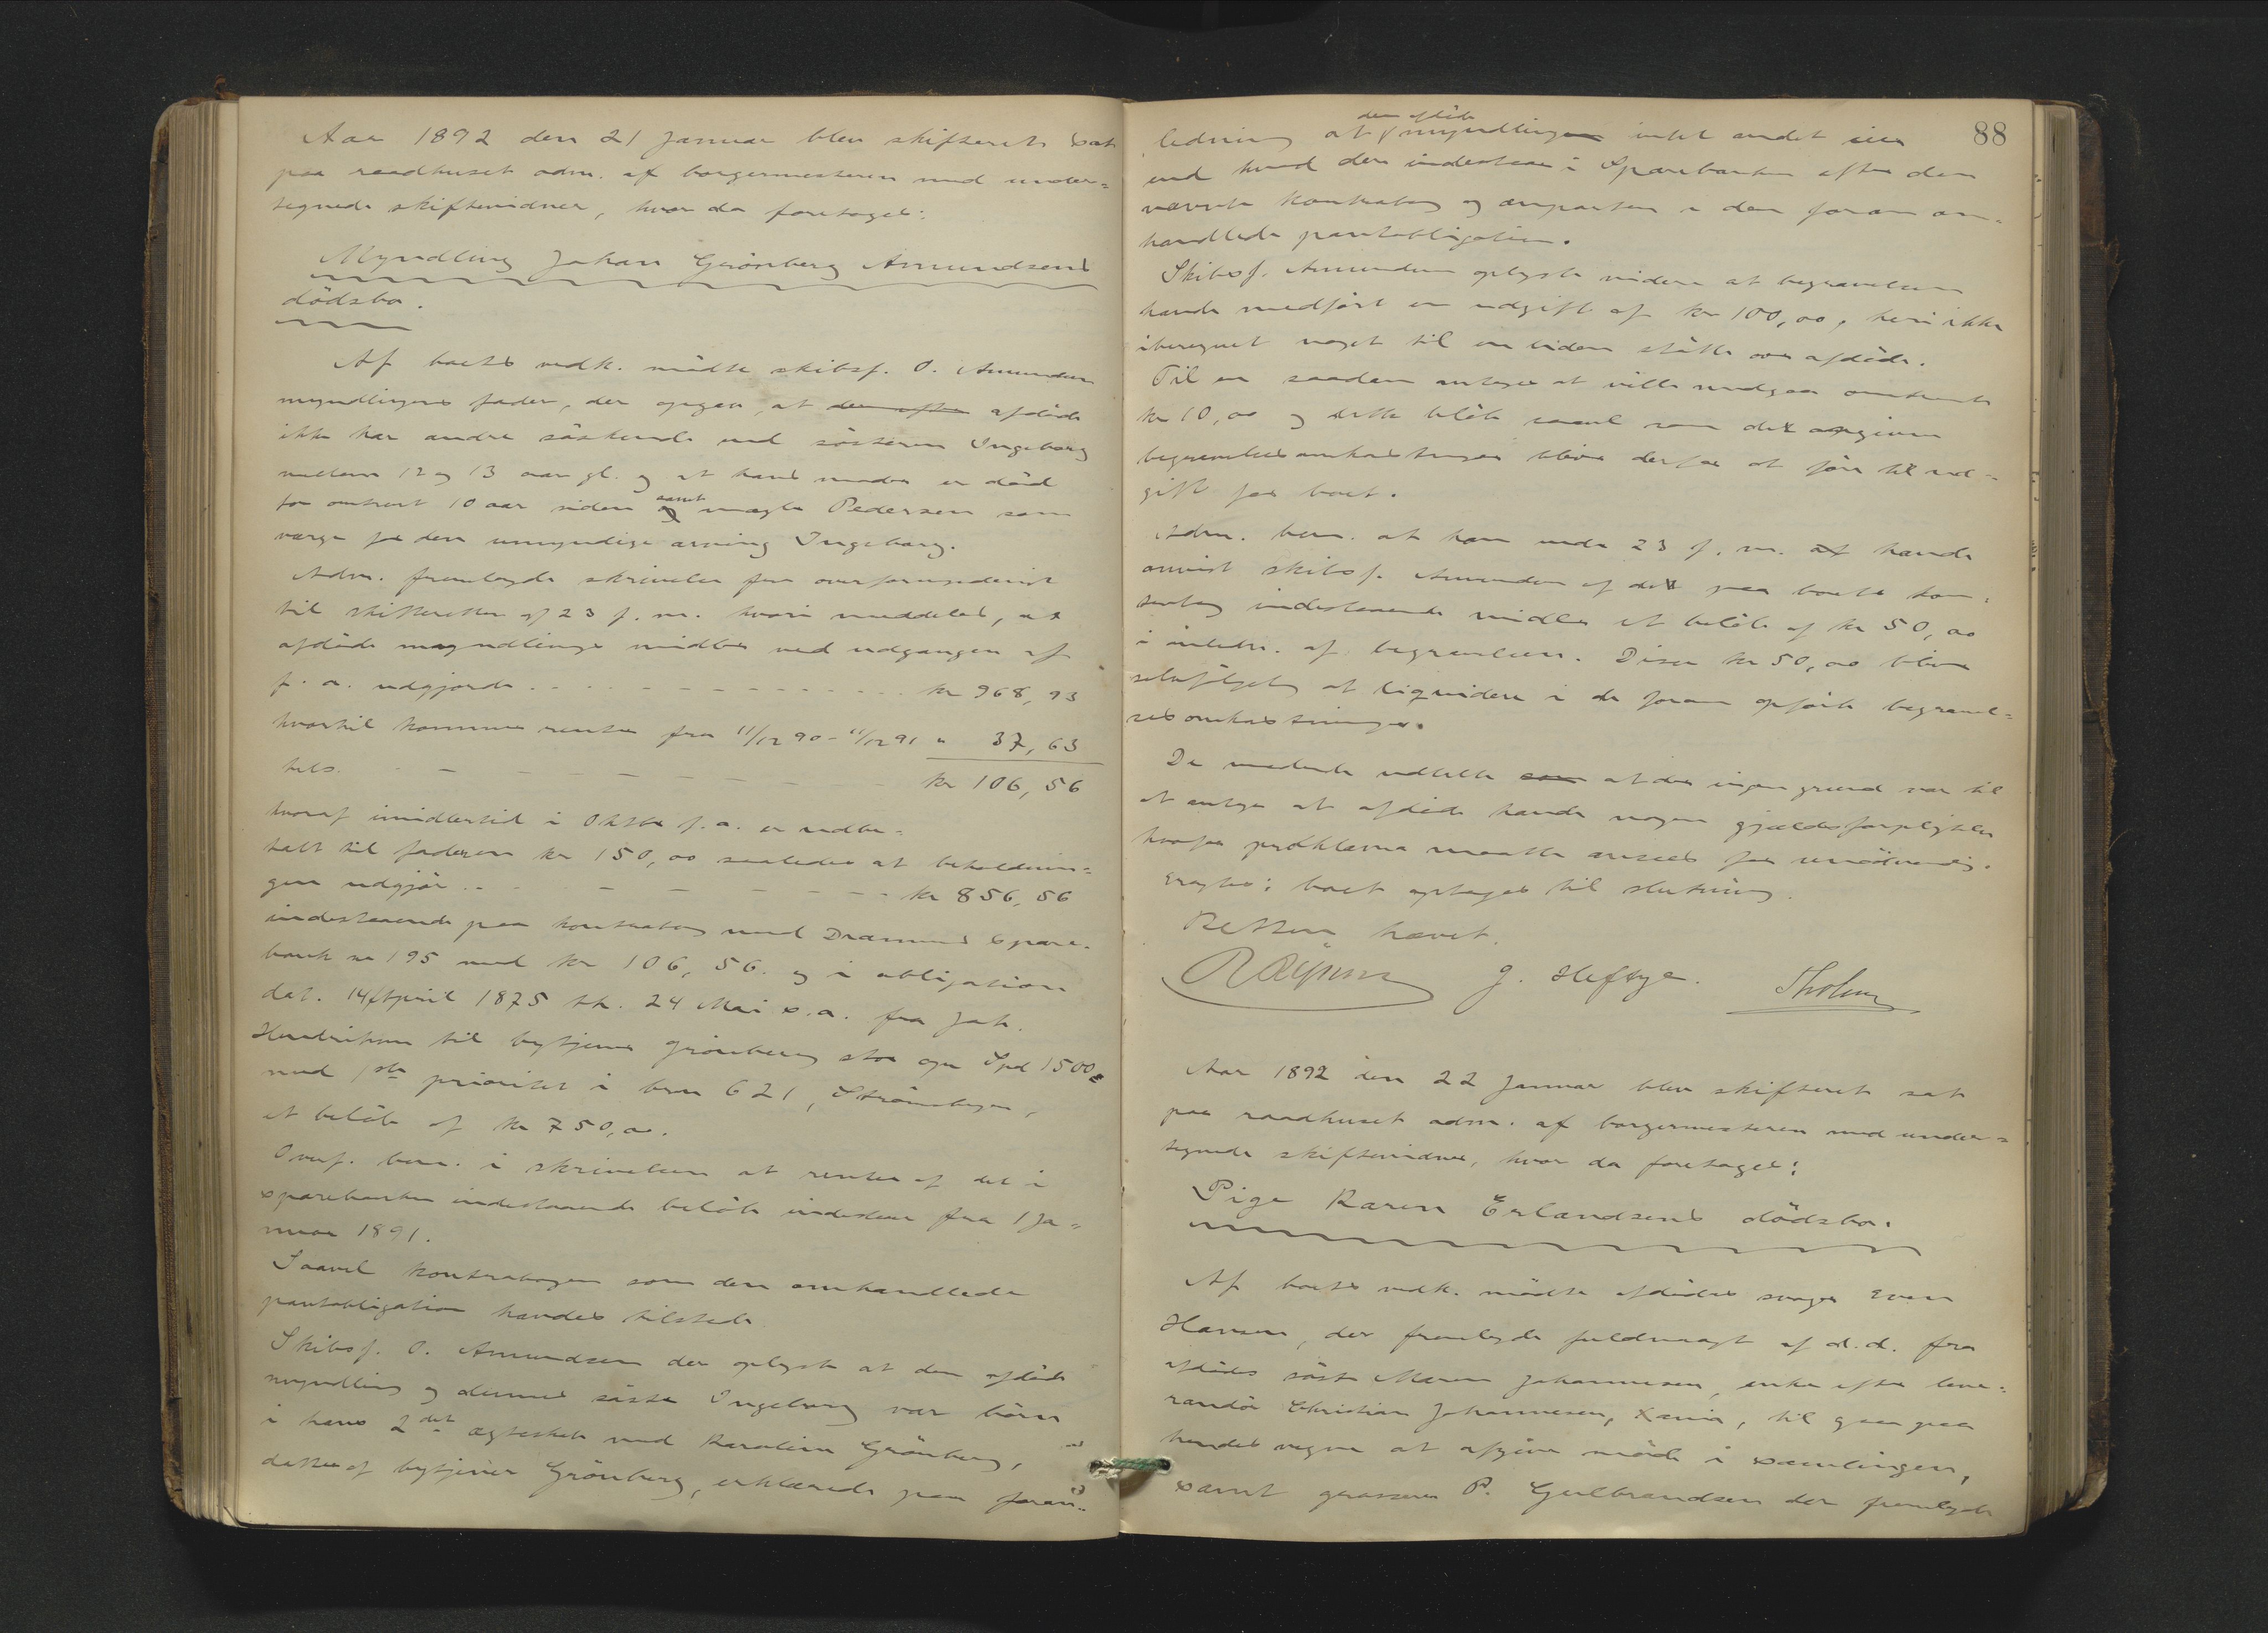 Aar 1892 den 21 Januar blev skifteret sat
paa raadhuset adm. af borgermesteren med under=
tegnede skiftevidner, hvor da foretoges:
Myndling Johan Grönberg Amundsens
dödsbo.
Af boets vedk. mödte skibsf. O. Amundsen
myndlingens fader, der opgav, at den efter afdöde
ikke har andre söskende end sösteren Ingeborg
mellem 12 og 13 aar gl. og at hans moder er död
for omtrent 10 aar siden samt mægler Pedersen som
værge for den umyndige arving Ingeborg.
Adm. fremlagde skrivelse fra overformynderiet
til skifteretten af 23 f. m. hvori meddeles, at
afdöde myndlings midler ved udgangen af
f. a. udgjorde . . . kr 968,93
hvortil kommer renter fra 11/12 90 - 11/12 91 " 37,63
tils. - - - kr 106,56
hvoraf imidlertid i Oktbr f. a. er udbe=
talt til faderen kr 150,00 saaledes at beholdnin=
gen udgjör . . - - - kr 856,56
indestaaende paa kontrabog med Drammens Spare=
bank no 195 med kr 106,56 og i obligation
dat. 14 April 1875 th. 24 Mai s. a. fra Joh.
Henriksen til bytjener Grönberg stor opr Spd 1500
med 1ste prioritet i brn 621, Strömsöe,
et belöb af kr 750,00.
Overf. bem. i skrivelsen at renter af det i
sparebanken indestaaende belöb indestaar fra 1 Ja=
nuar 1891.
Saavel kontrabogen som den omhandlede
pantobligation havdes tilstede
Skibsf. O. Amundsen der oplyste at den afdöde
myndling og dennes söster Ingeborg var börn
i hans 2det ægteskab med Karoline Grönberg,
datter af bytjener Grönberg, erklærede paa foran=
88
ledning at den afdöde myndlingen intet andet eier
end hvad der indestaar i Sparebanken efter den
nævnte kontrabog og anparten i den foran om=
handlede pantobligation.
Skibsf. Amundsen oplyste videre at begravelsen
havde medfört en udgift af kr 100,00, heri ikke
iberegnet noget til en liden stötte over afdöde.
Til en saadan antages at ville medgaa omtrent
kr 10,00 og dette belöb saavel som det opgivne
begravelsesomkostninger bliver derfor at före til ud=
gift for boet.
Adm. bem. at han under 23 f. m. havde
anvist skibsf. Amundsen af det paa boets kon=
trabog indestaaende midler et belöb af kr 50,00
i anledn. af begravelsen. Disse kr 50,00 bliver
selvfölgelig at liquidere i de foran opförte begravel=
sesomkostninger.
De mödende udtalte som at der ingen grund var til
at antage at afdöde havde nogen gjældsforpligtelse
hvorfor proklama maatte ansees for unödvendig.
Eragtes: boet optages til slutning.
Retten hævet.
J. Heftye. Tholm
Aar 1892 den 22 Januar blev skifteret sat
paa raadhuset adm. af borgermesteren med under=
tegnede skiftevidner, hvor da foretoges:
Pige Karen Erlandsens dödsbo.
Af boets vedk. mödte afdödes svoger Even
Hansen, der fremlagde fuldmagt af d.d. fra
afdödes söster Maren Johannesen, enke efter leve=
randör Christian Johannesen, Xania, til paa
hendes vegne at afgive möde i samlingen,
samt grosserer P. Gulbrandsen der fremlagde